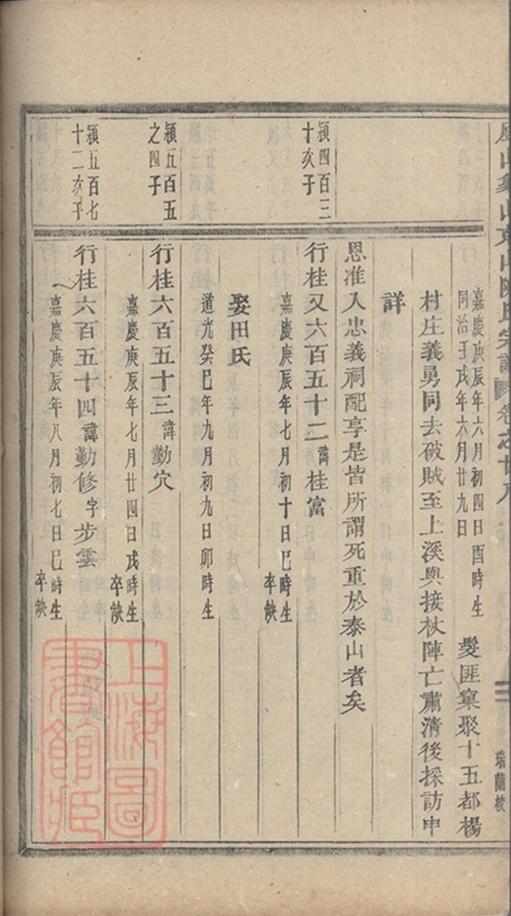 陳氏宗譜 卷之廿八
瑞蘭校
嘉慶庚辰年六月初四日酉時生
同治壬戌年六月廿九日
髮匪窠聚十五都楊
村庄義勇同去破賊至上溪與接杖陣亡肅清後採訪申
詳
恩准入忠義祠配享是皆所謂死重於泰山者矣
穎四百三
十亥子
行桂又六百五十二諱桂富
嘉慶庚辰年七月初十日巳時生
卒缺
娶田氏
道光癸巳年九月初九日卯時生
穎五百五
之四子
行桂六百五十三諱勤穴
嘉慶庚辰年七月廿四日戌時生
卒缺
穎五百七
十二亥子
行桂六百五十四諱勤修字步雲
嘉慶庚辰年八月初七日巳時生
卒缺
上海圖
書館藏